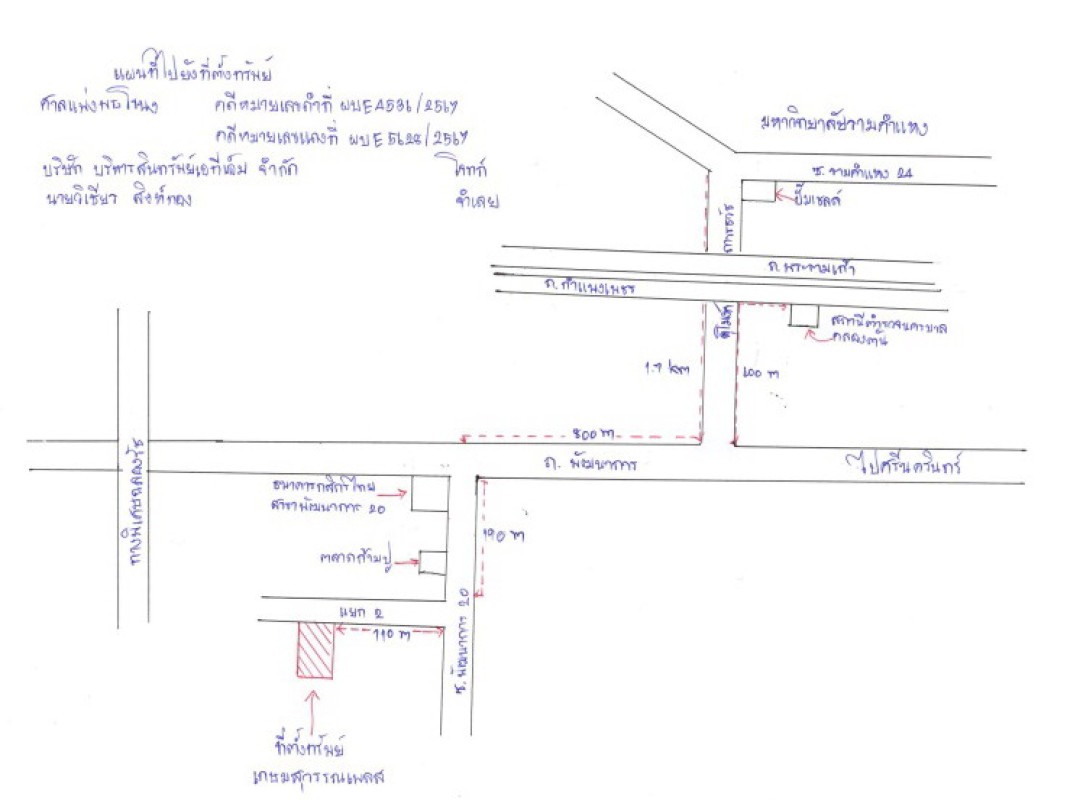 แผนที่ไปยังที่ตั้งทรัพย์
ศาลแพ่งพระโขนง คดีหมายเลขดำที่ ผบE4536/2567
คดีหมายเลขแดงที่ ผบE5628/2567
บริษัท บริหารสินทรัพย์เอทีเอ็ม จำกัด โจทก์
นายวิเชียร สิงห์ทอง จำเลย
มหาวิทยาลัยรามคำแหง
ซ. รามคำแหง 24
ปั๊มเชลล์
ถ. พระรามเก้า
ถ. กำแพงเพชร
สถานีตำรวจนครบาล
คลองตัน
1.7 km
100 m
800 m
ถ. พัฒนาการ
ไปศรีนครินทร์
ทางพิเศษฉลองรัช
ธนาคารกสิกรไทย
สาขาพัฒนาการ 20
190 m
ตลาดสามปู
แยก 2
110 m
ซ. พัฒนาการ 20
ที่ตั้งทรัพย์
เกษมสุวรรณเพลส